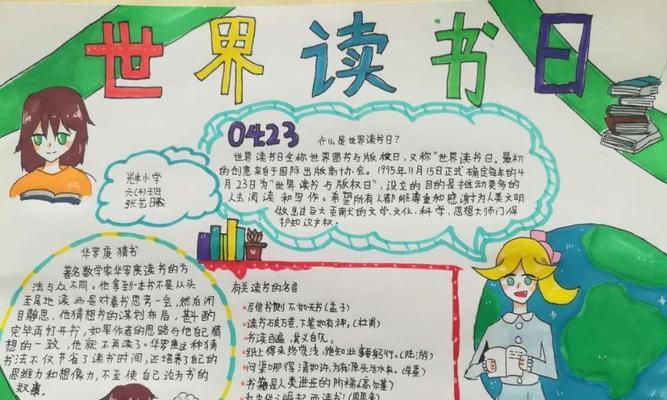 世界读书日
04.23 什么是世界读书日?
世界读书日全称世界图书与版权日,又称"世界读书日。最初
的创意来自于国际出版商协会。1995年11月15日正式确定每年的4
月23日为"世界读书与版权日",设立的目的是推动更多的
人去阅读和写作。希望所有人都能尊重和感谢为人类文明
做出过巨大贡献的文学、文化、科学、思想大师们,保
护知识产权。
小学
六(4)班
华罗庚 猜书
著名数学家华罗庚读书的方
法与众不同。他拿到本书不是从头
至尾地读,而是对着书思考一会,然后闭
目静思,他猜想书的谋划布局,斟酌
完毕再打开书,如果作者的思路与他自己猜
想的一致,他就不再读了。华罗庚这种猜
书法不仅节省了读书时间,还培养了自己的
思维力和想像力,不至使自己沦为书的
奴隶。
有关读书的名言
尽信书则不如无书(孟子)
读书破万卷,下笔如有神。(杜甫)
书读百遍,其义自见。
纸上得来终觉浅,绝知此事要躬行。(陆游)
问渠哪得清如许,为有源头活水来。(朱熹)
书籍是人类进步的阶梯(高尔基)
为中华之崛起而读书!(周恩来)